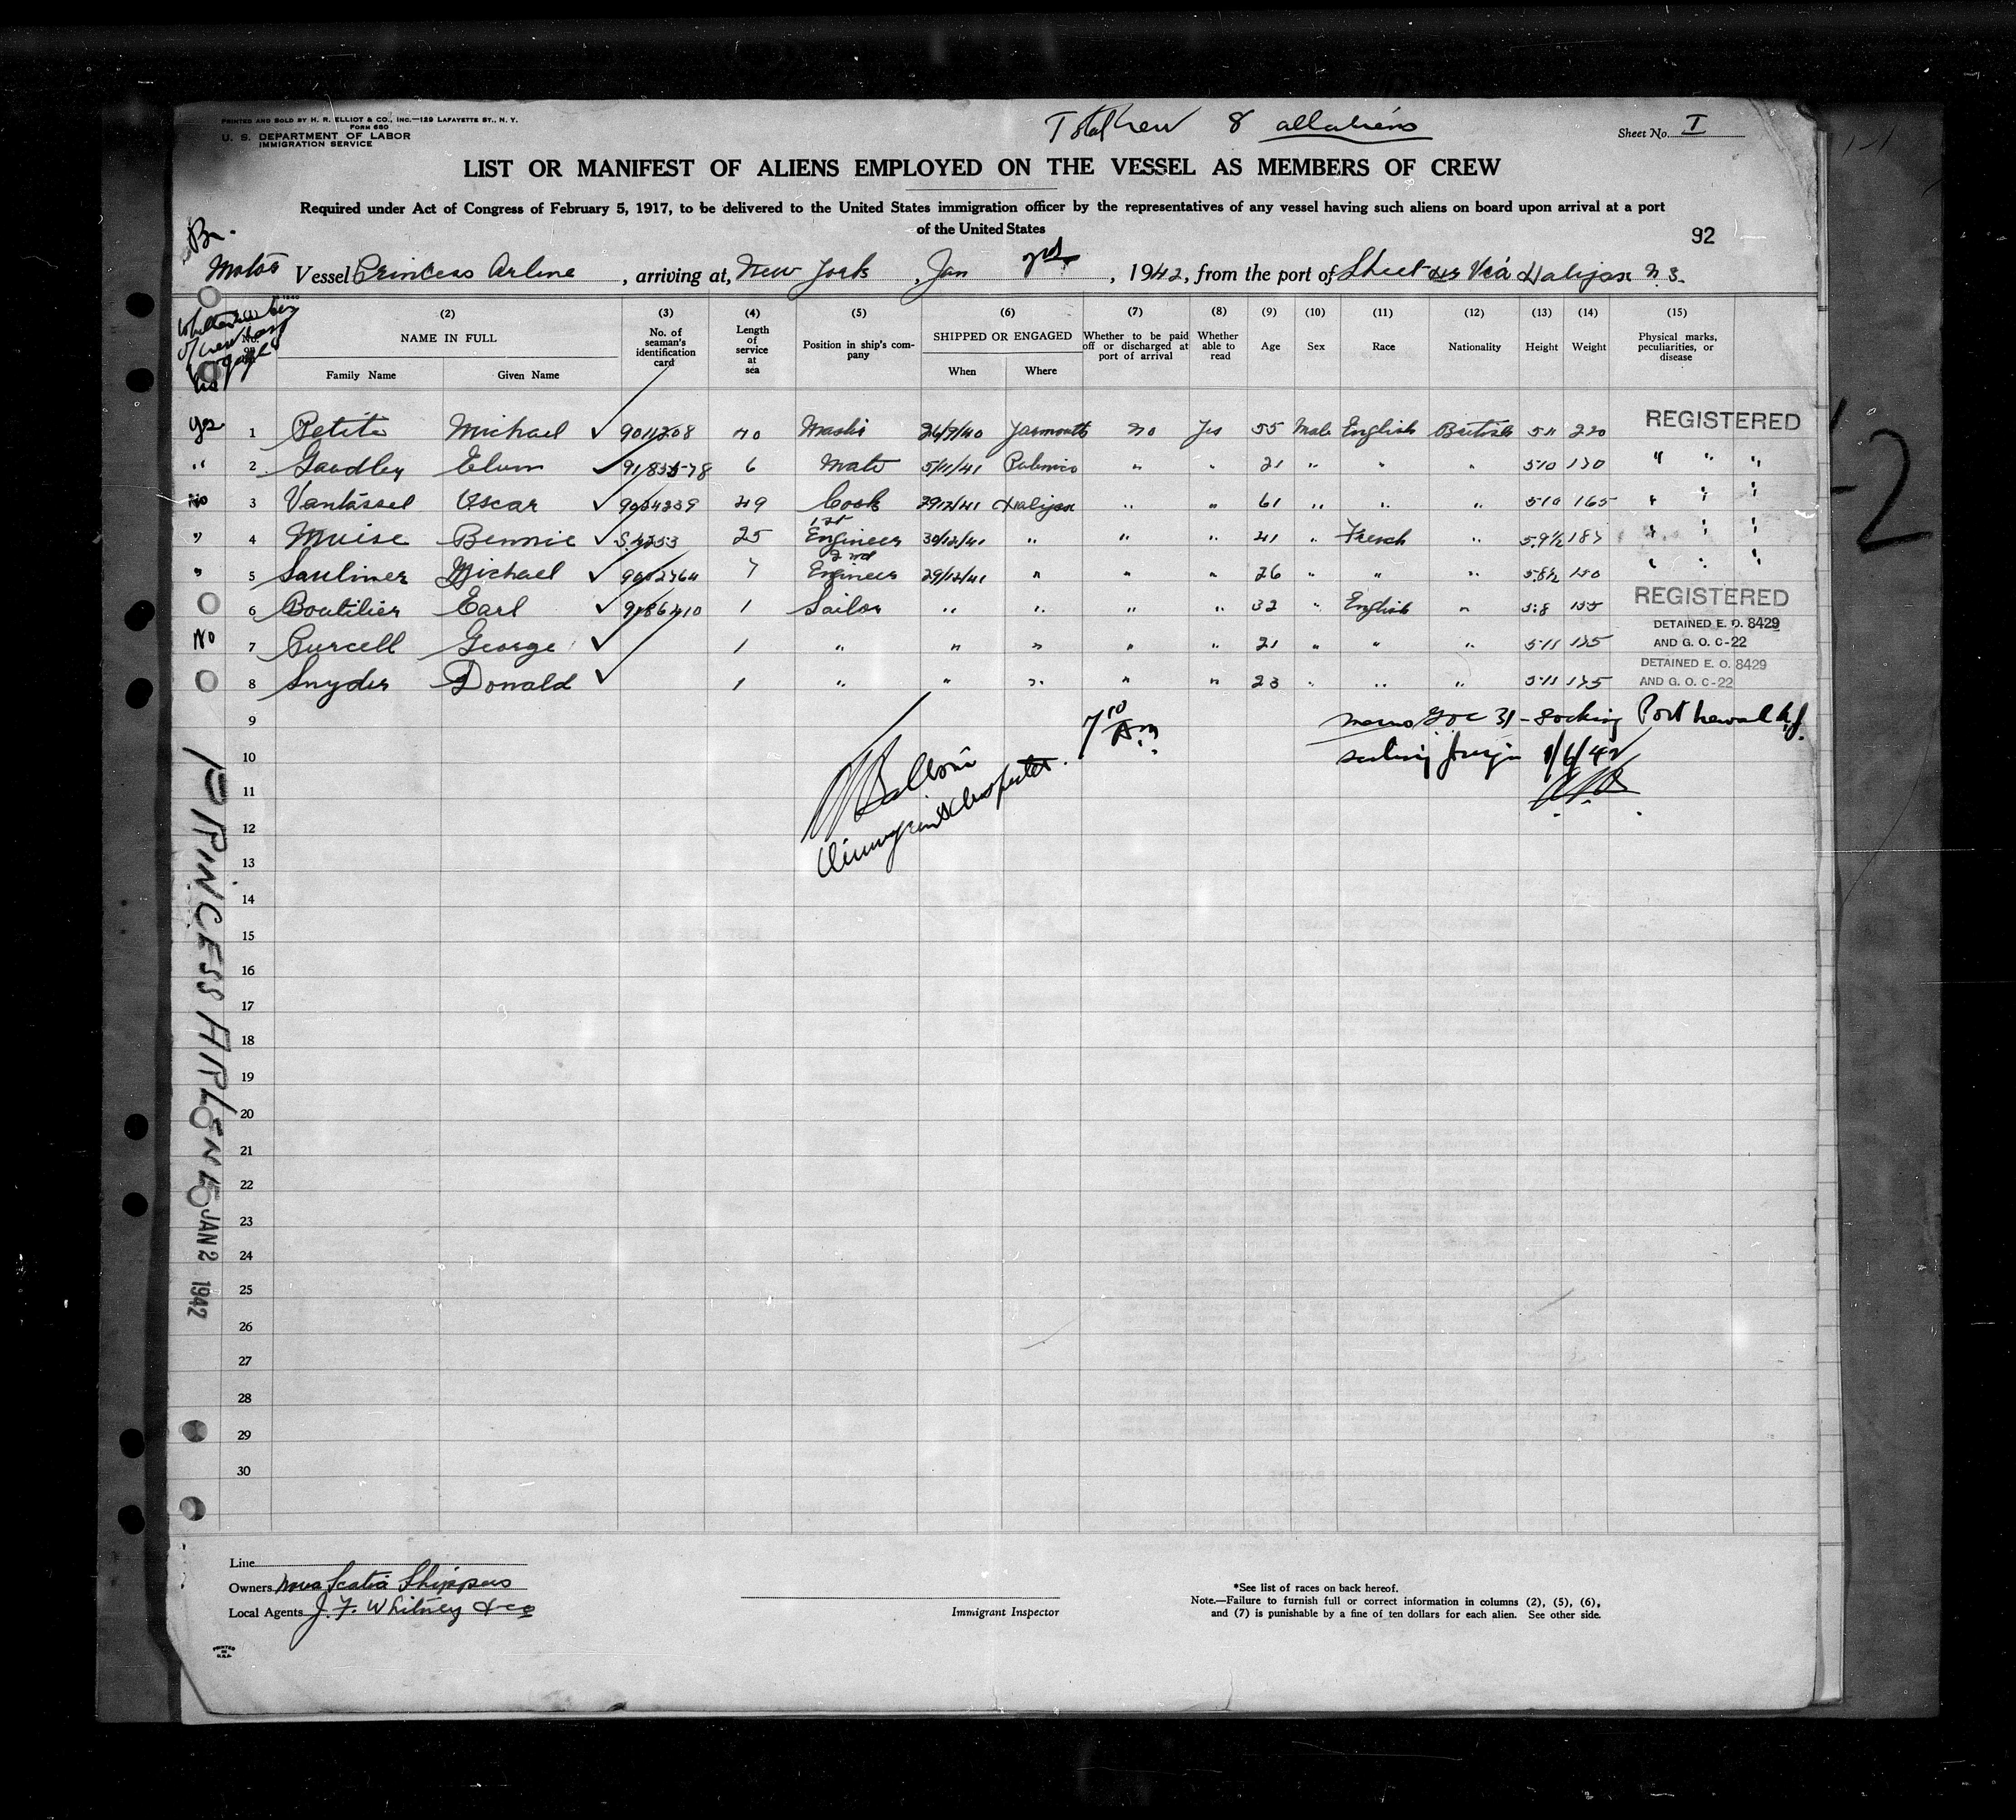 PRINTED AND SOLD BY H. R. ELLIOT & CO., INC.—129 LAFAYETTE ST., N. Y.
FORM 680
U. S. DEPARTMENT OF LABOR
IMMIGRATION SERVICE
Total Crew 8 all aliens
Sheet No. I
LIST OR MANIFEST OF ALIENS EMPLOYED ON THE VESSEL AS MEMBERS OF CREW
Required under Act of Congress of February 5, 1917, to be delivered to the United States immigration officer by the representatives of any vessel having such aliens on board upon arrival at a port
of the United States
92
Br.
Motor Vessel Princess Arlene, arriving at, New York, Jan 2nd, 1942, from the port of Sheet Hr Via Halifax N.S.
(2) (3) (4) (5) (6) (7) (8) (9) (10) (11) (12) (13) (14) (15)
NAME IN FULL
Family Name Given Name
No. of seaman's identification card
Length of service at sea
Position in ship's company
SHIPPED OR ENGAGED
When Where
Whether to be paid off or discharged at port of arrival
Whether able to read
Age Sex Race Nationality Height Weight
Physical marks, peculiarities, or disease
Yes 1 Petite Michael ✓ 9011208 40 Master 26/9/40 Yarmouth no Yes 55 Male English British 5-11 220 REGISTERED
" 2 Goodley ✓ 6 Mate 5/11/41 Pubnico " " 21 " " " 5-10 " " "
No 3 Vantassel Oscar ✓ 9034239 49 Cook 29/12/41 Halifax " " 61 " " " 5-10 165 " " "
" 4 Muise Bennie ✓ S.4253 25 1st Engineer 30/12/41 " " " 41 " French " 5.9½ 187 " " "
" 5 Saulnier Michael ✓ 9012764 7 2nd Engineer 29/12/41 " " " 26 " " " 5.8½ 150 " " "
6 Boutilier Earl ✓ 9186410 1 Sailor " " " " 32 " English " 5.8 155 REGISTERED
No 7 Purcell George ✓ 1 " " " " " 21 " " " 5-11 175 DETAINED E. O. 8429 AND G. O. C-22
8 Snyder Donald ✓ 1 " " " " " 23 " " " 5-11 175 DETAINED E. O. 8429 AND G. O. C-22
9
7 10 AM
10
sailing foreign 1/6/42
11
Immigrant Inspector.
12
13
14
15
16
17
18
19
20
21
22
23
24
25
26
27
28
29
30
PRINCESS ARLENE JAN 2 1942
2
Line
Owners Nova Scotia Shippers
Local Agents J. F. Whitney & Co
Immigrant Inspector
*See list of races on back hereof.
Note.—Failure to furnish full or correct information in columns (2), (5), (6),
and (7) is punishable by a fine of ten dollars for each alien. See other side.
PRINTED IN U.S.A.